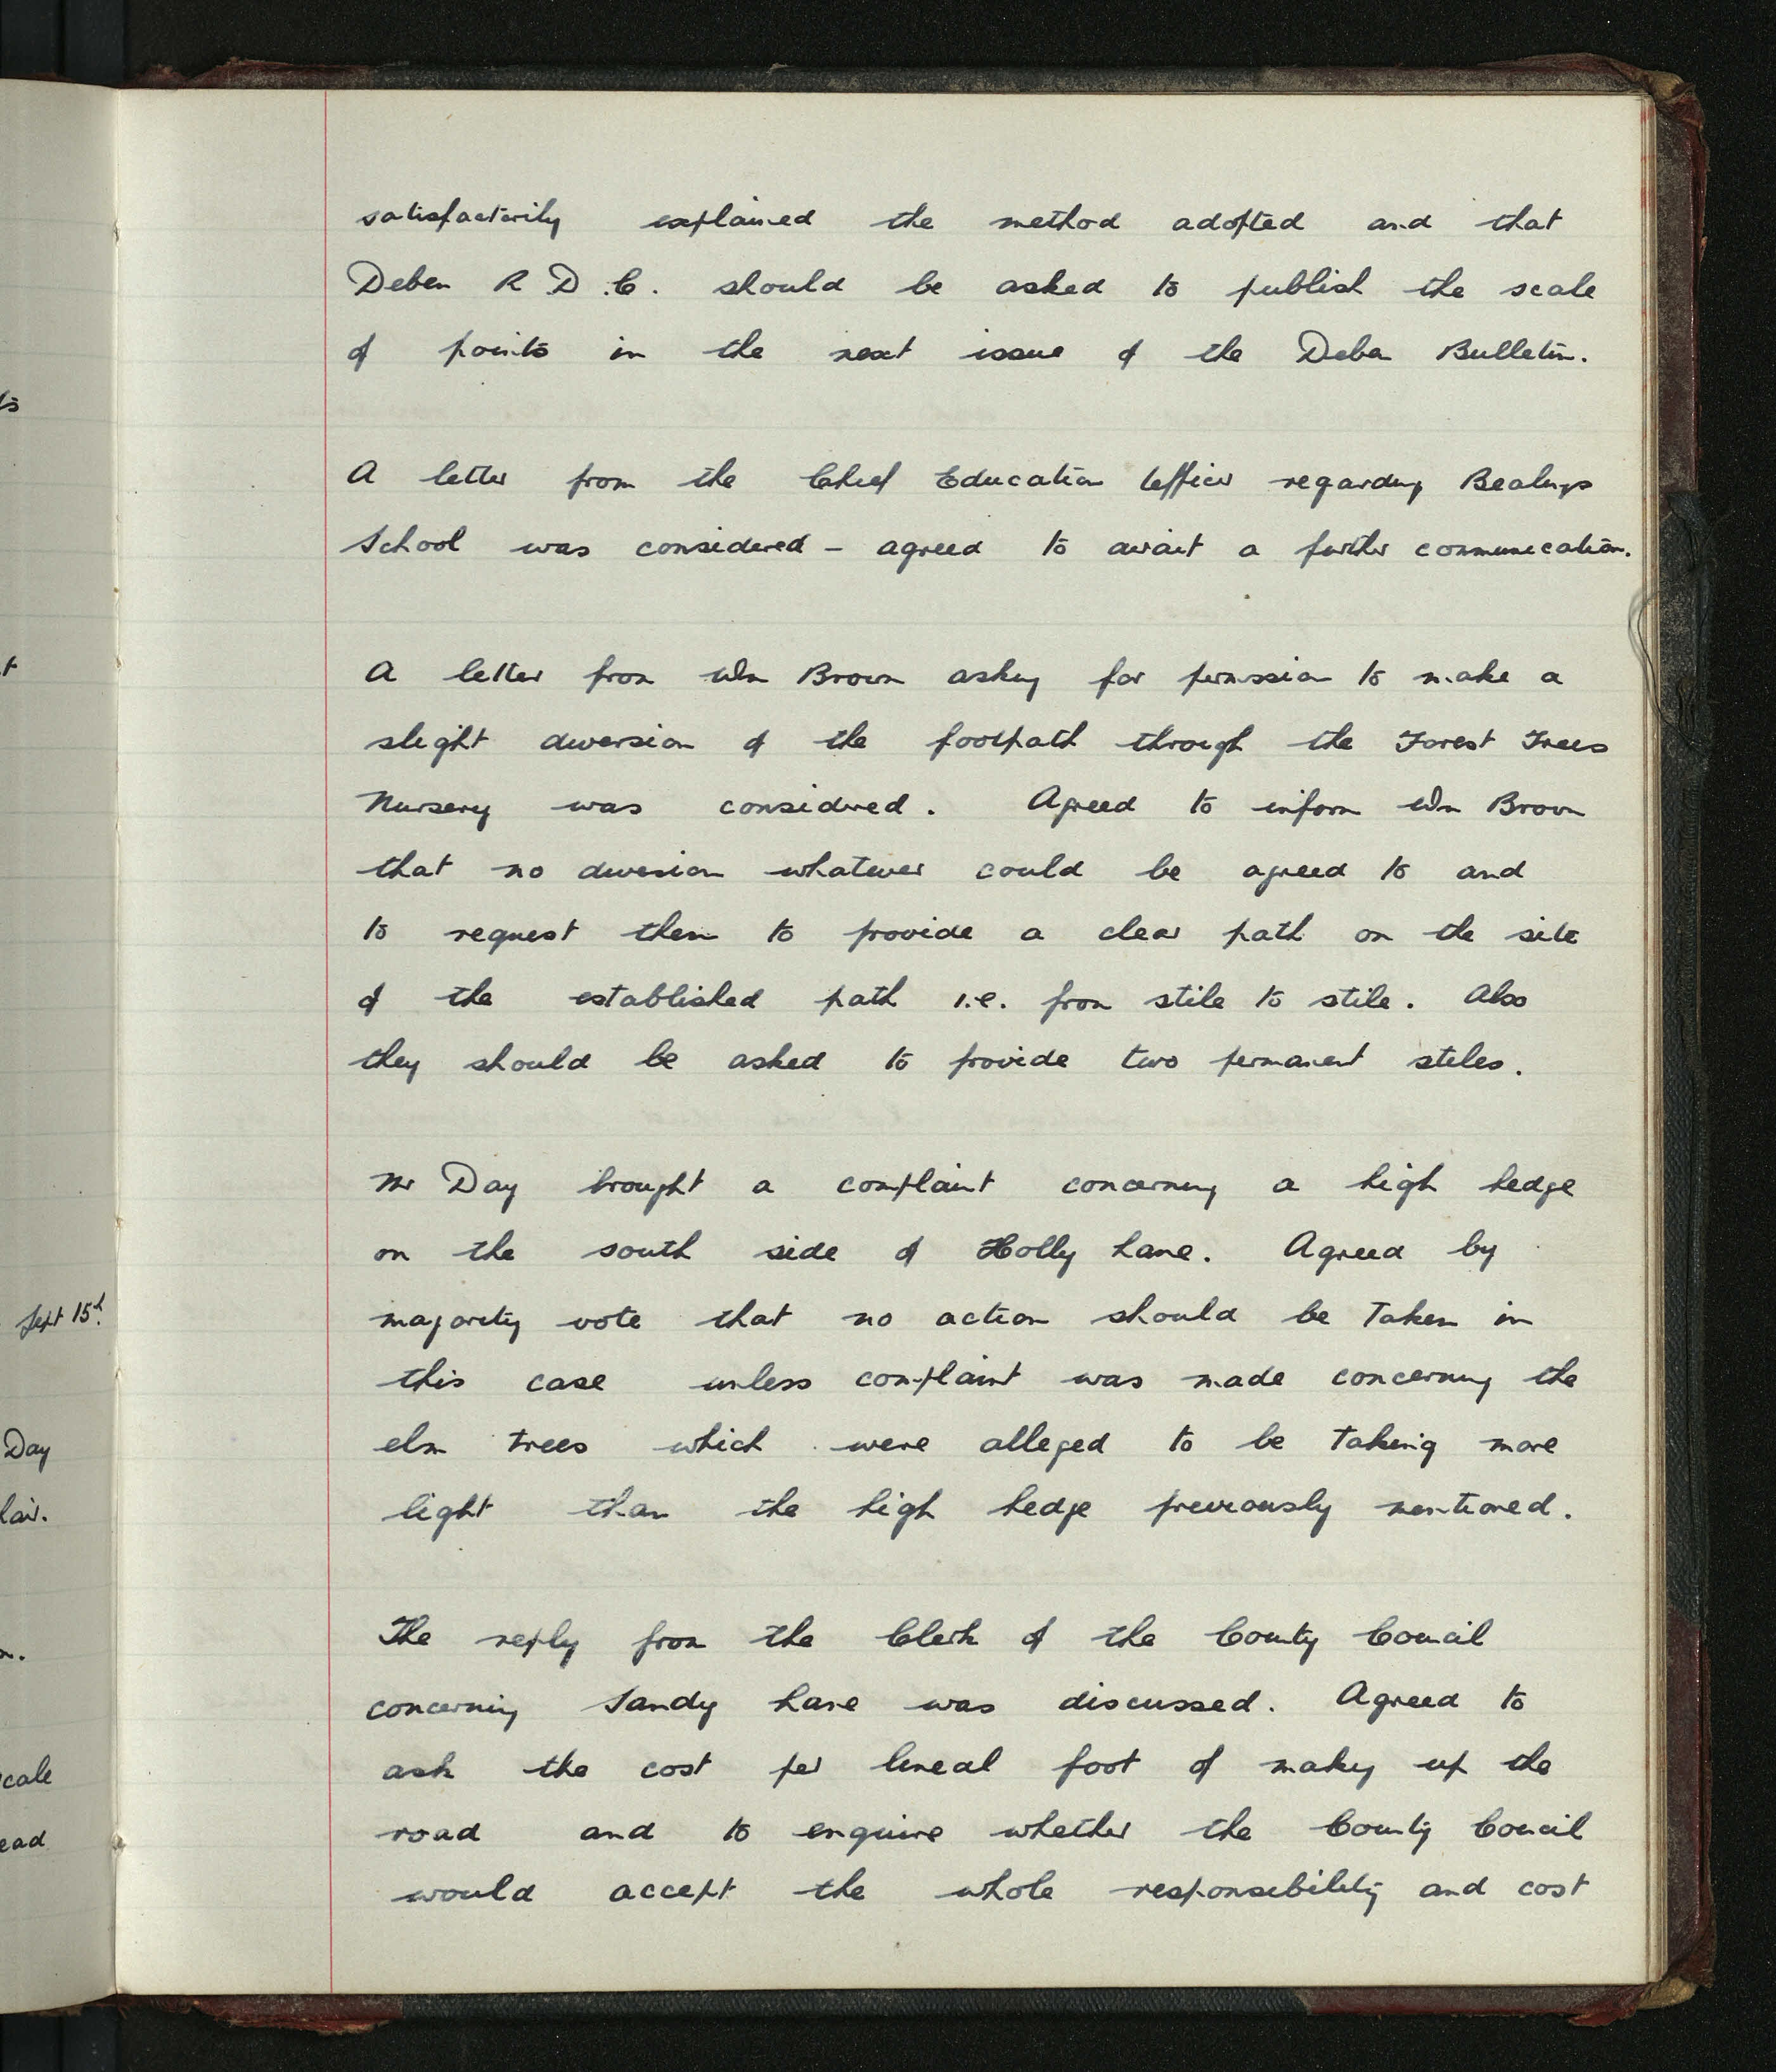 satisfactorily explained the method adopted and that
Deben R.D.C. should be asked to publish the scale
of points in the next issue of the Deben Bulletin.
A letter from the Chief Education Officer regarding Bealings
School was considered - agreed to await a further communication.
A letter from Wm Brown asking for permission to make a
slight diversion of the footpath through the Forest Trees
Nursery was considered. Agreed to inform Wm Brown
that no diversion whatever could be agreed to and
to request them to provide a clear path on the site
of the established path i.e. from stile to stile. Also
they should be asked to provide two permanent stiles.
Mr Day brought a complaint concerning a high hedge
on the south side of Holly Lane. Agreed by
majority vote that no action should be taken in
this case unless complaint was made concerning the
elm trees which were alleged to be taking more
light than the high hedge previously mentioned.
The reply from the Clerk of the County Council
concerning Sandy Lane was discussed. Agreed to
ask the cost per lineal foot of making up the
road and to enquire whether the County Council
would accept the whole responsibility and cost
Sept 15th
Day